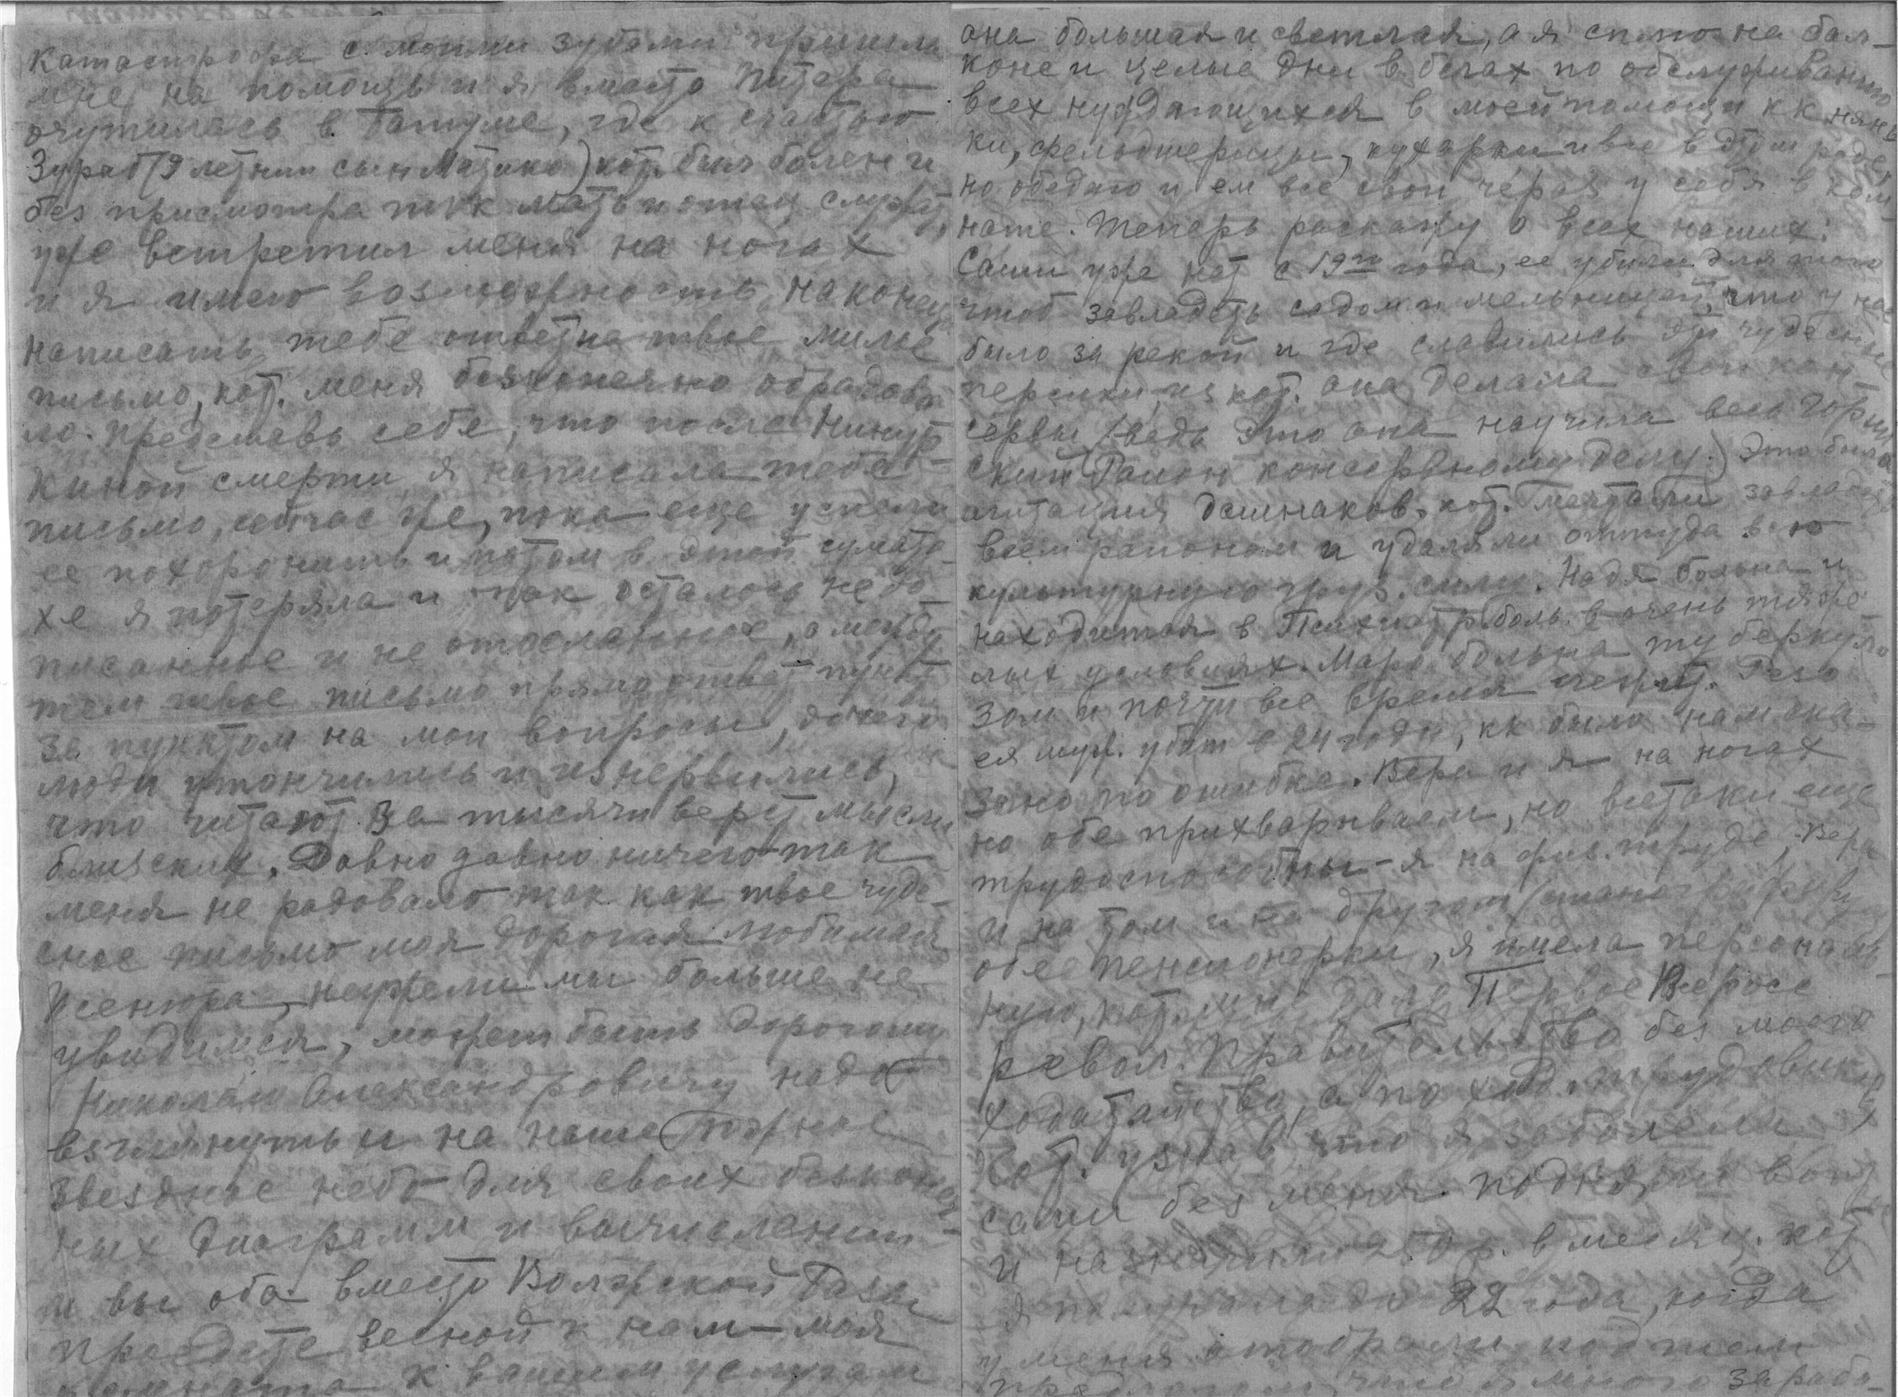 Катастрофа с моими зубами пришла
мне на помощь и я вместо Питера
очутилась в Батуме, где к счастью
Зураб (9 летний сын Матико) кот. был болен и
без присмотра т.к. мать и отец служат,
уже встретил меня на ногах
и я имею возможность, наконец
написать тебе ответ на твое милое
письмо, кот. меня бесконечно обрадова-
ло. Представь себе, что после Нинуш-
киной смерти, я написала тебе
письмо, сейчас же, пока еще успели
ее похоронить и потом в этой сумато-
хе я потеряла и так осталось недо-
писанное и не отосланное, а между
тем твое письмо прямо ответ пункт
за пунктом на мои вопросы, до чего
люди утончились и изнервились,
что читают за тысячи верст мысли
близких. Давно давно ничего так
меня не радовало так как твое чуде-
сное письмо моя дорогая любимая
Ксенюра, неужели мы больше не
увидимся, может быть дорогому
Николаю Александровичу надо
взглянуть и на наше Южное
звездное небо для своих бесконеч-
ных диаграмм и вычислений
и вы оба вместо Волжской базы
приедете весной к нам – моя
комната к вашим услугам
она большая и светлая, а я сплю на бал-
коне и целые дни в бегах по обслуживанию
всех нуждающихся в моей помощи кк нянь-
ки, фельдшерицы, кухарки и все в этом роде,
но обедаю и ем все свои у себя в ком-
нате. Теперь раскажу о всех наших:
Саши уже нет с 19го года, ее убили для того
чтоб завладеть садом и мельницей, что у нас
было за рекой и где славились эти чудесные
персики, из кот. она делала свои кон-
сервы (ведь это она научила весь Горий-
ский Район консервному делу.) Это была
агитация дашнаков, кот. мечтали завладеть
всем районом и удаляли оттуда всю
культурную груз. силу. Надя больна и
находится в Психиатр. боль. в очень тяже-
лых условиях. Маро больна туберкуло-
зом и почти все время лежит. Резо
ея муж. убит в 24 году, кк было нам ска-
зано по ошибке. Вера и я на ногах
но обе прихварываем, но всетаки еще
трудоспособны – я на физ. труде, Вера
и на том и на другом (стенографирует)
обе пенсионерки, я имела персональ-
ную, кот. мне дало Первое Всеросс.
револ. Правительство без моего
ходатайства, а по ход. трудовиков,
кот. узнав что я заболела,
сами без меня подняли вопр.
и назначили р. в месяц. кот.
я получала до 22 года, когда
у меня отобрали под тем
предлогом, что я много зараба-